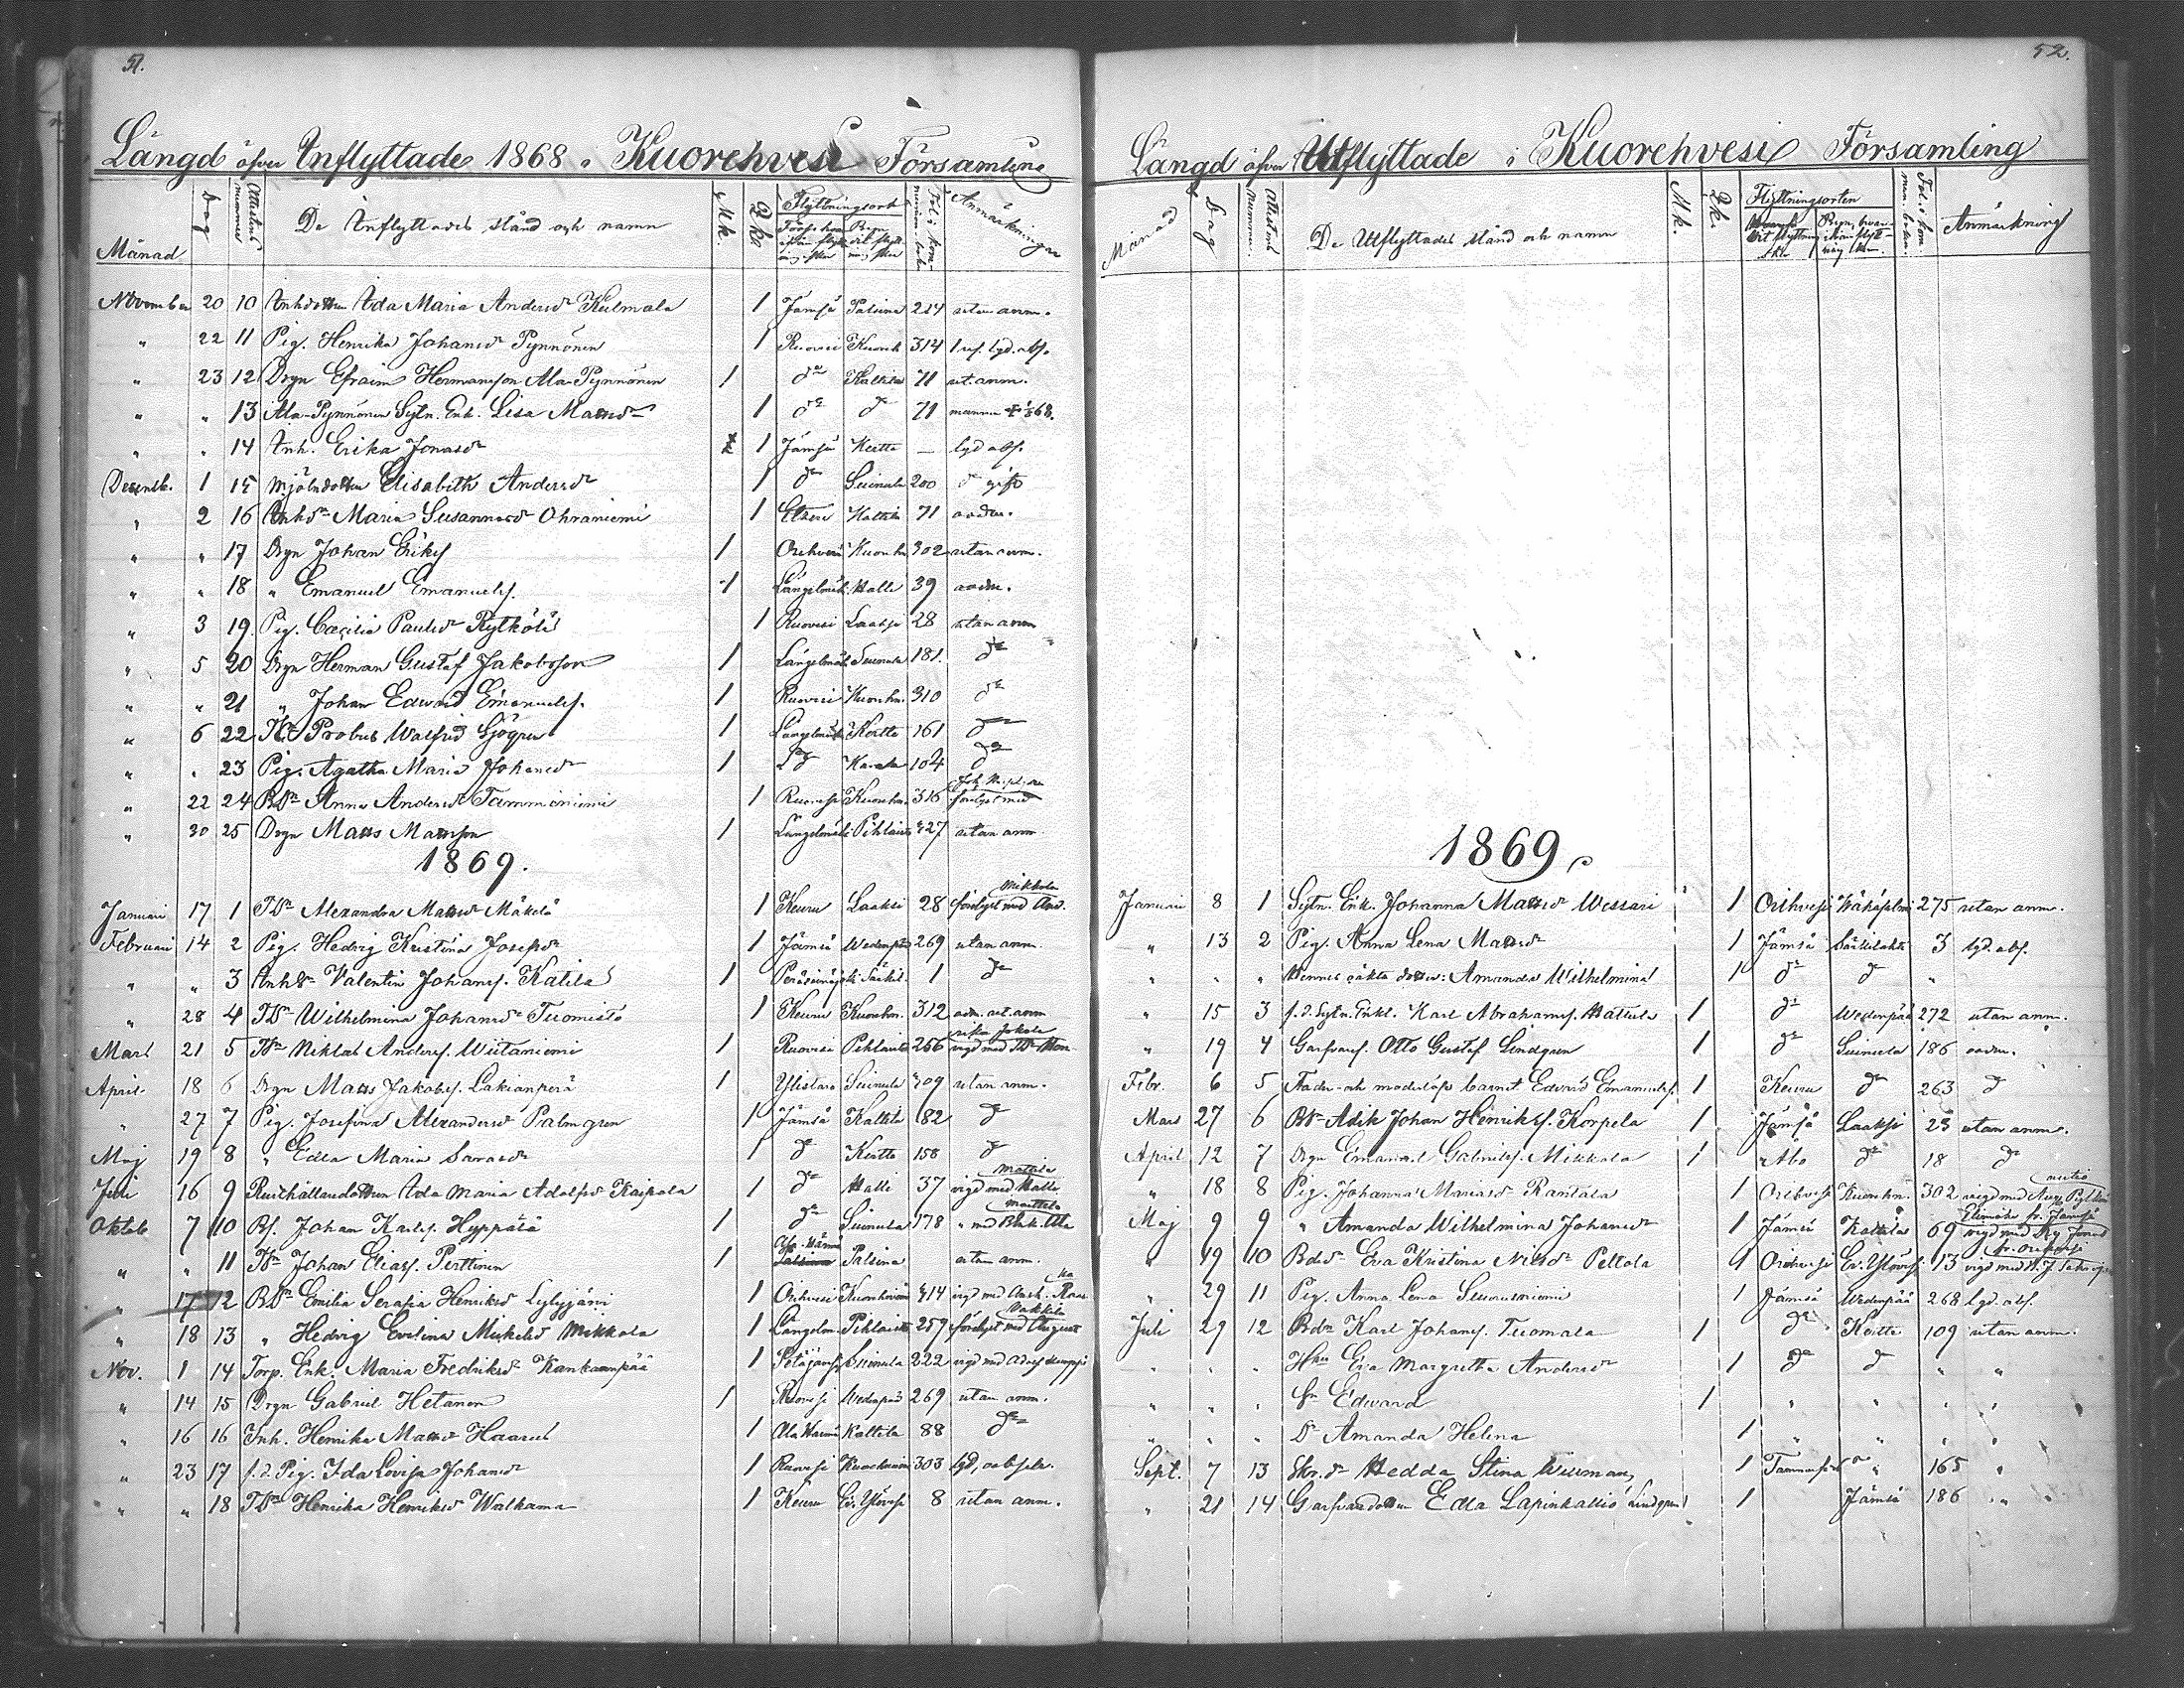 51.
Längd öfver Inflyttade 1868 i Kuorehvesi Församling
Månad Dag Attestens nummer De Inflyttades stånd och namn M.k. Q.k. Flyttningsort Anmärkningar
November 20 10 Inhdottren Ida Maria Andersdr Kulmala 1 Jämsä Palsina 214 utan anm.
" 22 11 Pig. Henrika Johansdr Pynnönen 1 Ruovesi Kuoreh. 314 lyd. abs.
" 23 12 Drgn Efraim Hermansson Ala-Pynnönen 1 do Kattila 71 ut. anm.
" " 13 Ala-Pynnönen Sytn. Enk. Lisa Mattsdr 1 do do 71
" " 14 Inh. Erika Jonasdr 1 Jämsä Kertte — lyd abs.
Decemb. 1 15 Mjölndottren Elisabeth Andersdr 1 do Suinula 200 do gift
" 2 16 Inhdr Maria Susannasdr Ohraniemi 1 Etseri Kattila 71 oadm.
" " 17 Drgn Johan Eriks. 1 Orihvesi Kuoreh. 302 utan anm.
" " 18 " Emanuel Emanuels. 1 Längelmäki Halli 39 oadm.
" 3 19 Pig. Cæcilia Paulsdr Rytkölä 1 Ruovesi Laaksi 28 utan anm
" 5 20 Drgn Herman Gustaf Jakobsson 1 Längelmäki Suinula 181 do
" " 21 " Johan Edward Emanuels. 1 Ruovesi Kuoreh. 310 do
" 6 22 Probus Walfrid Sjögren 1 Längelmäki Kertte 161 do
" " 23 Pig. Agatha Maria Johansdr 1 104 do
" 22 24 BDr Anna Andersdr Tammeniemi 1 Ruovesi Kuoreh. 316 förlyst med
" 30 25 Drgn Matts Mattsson 1 Längelmäki Pihlaisto 427 utan anm.
1869.
Januari 17 1 TDr Alexandra Mattsdr Mäkelä 1 Keuru Laaksi 28 förlyst med And. Mikkola
Februari 14 2 Pig. Hedvig Kristina Josefsdr 1 Jämsä Wedenpää 269 utan anm.
" " 3 Valentin Johans. Katila 1 Peräseinäjoki Särkil. 1 do
" 28 4 TDr Wilhelmina Johansdr Tuomisto 1 Keuru Kuoreh. 312 adm. ut. anm
Mars 21 5 Niklas Anders. Wiitaniemi 1 Ruovesi Pihlaisto 256 vigd med
April 18 6 Drgn Matts Jakobs. Lakianperä 1 Ylistaro Suinula 209 utan anm.
" 27 7 Pig. Josefina Alexandersdr Palmgren 1 Jämsä Kattila 82 do
Maj 19 8 " Edla Maria Sarasdr 1 do Kertte 158 do
Juli 16 9 Rusthållaredottren Ida Maria Adolfsdr Kaipala 1 do Halli 37 vigd med Halli Mattila
Oktob. 7 10 Bs. Johan Karls. Hyppälä 1 do Suinula 178 " med
" " 11 Johan Elias. Perttinen 1 Palsina utan anm.
" 17 12 BDr Emilia Serafia Henriksdr Lylyjärvi 1 Orihvesi Kuorehvesi 414 vigd med
" 18 13 " Hedvig Evelina Mickelsdr Mikkola 1 Längelm. Pihlaisto 259 förlyst med August
Nov. 1 14 Torp. Enk. Maria Fredriksdr Kankaanpää 1 Petäjävesi Suinula 222 vigd med
" 14 15 Drgn Gabriel Hetanen 1 Ruovesi Wedenpää 269 utan anm.
" 16 16 Inh. Henrika Mattsdr Haarus 1 Ala Härmä Kattila 88 do
" 23 17 f.d. Pig. Ida Lovisa Johansdr 1 Ruovesi Kuorehvesi 303 lyd,
" " 18 TDr Henrika Henriksdr Walkama 1 Keuru Ev. Ylövesi 8 utan anm.
52.
Längd öfver Utflyttade i Kuorehvesi Församling
Månad Dag Attestens nummer De Utflyttades stånd och namn M.k. Q.k. Flyttningsorten Anmärkning
1869.
Januari 8 1 Sytn. Enk. Johanna Mattsdr Wessari 1 Orihvesi Wähäsalmi 275 utan anm.
" 13 2 Pig. Anna Lena Mattsdr 1 Jämsä Särkilahti 3 lyd. abs.
" " " Hennes oäkta dotter: Amanda Wilhelmina 1 do do "
" 15 3 f.d. Sytn. Karl Abrahams. Hattula 1 do Wedenpää 272 utan anm.
" 19 4 Garfvares. Otto Gustaf Lindgren 1 do Suinula 186 oadm.
Febr. 6 5 Fader- och moderlösa barnet Edvard Emanuels. 1 Keuru do 263 do
Mars 27 6 Johan Henriks. Korpela 1 Jämsä Laaksi 23 utan anm.
April 12 7 Drgn Emanuel Gabriels. Mikkola 1 Åbo do 18 do
" 18 8 Pig. Johanna Mariasdr Rantala 1 Orihvesi Kuoreh. 302 vigd med
Maj 9 9 " Amanda Wilhelmina Johansdr 1 Jämsä Kattila 69 vigd med
" 19 10 Eva Kristina Nilsdr Peltola 1 Orihvesi Ev. Ylövesi 13 vigd med
" 29 11 Pig. Anna Lena 1 Jämsä Wedenpää 268 lyd. abs.
Juli 29 12 Karl Johans. Tuomala 1 do Kertte 109 utan anm.
" " " Hu Eva Margretha Andersdr 1 do do " "
" " " Sn Edward 1 " " " "
" " " Dr Amanda Helena 1 " " " "
Sept. 7 13 Hedda Stina Wiiman 1 Tammerfors " 165 "
" 21 14 Garfvaredottren Edla Lapinkallio Lindgren 1 Jämsä 186 " "